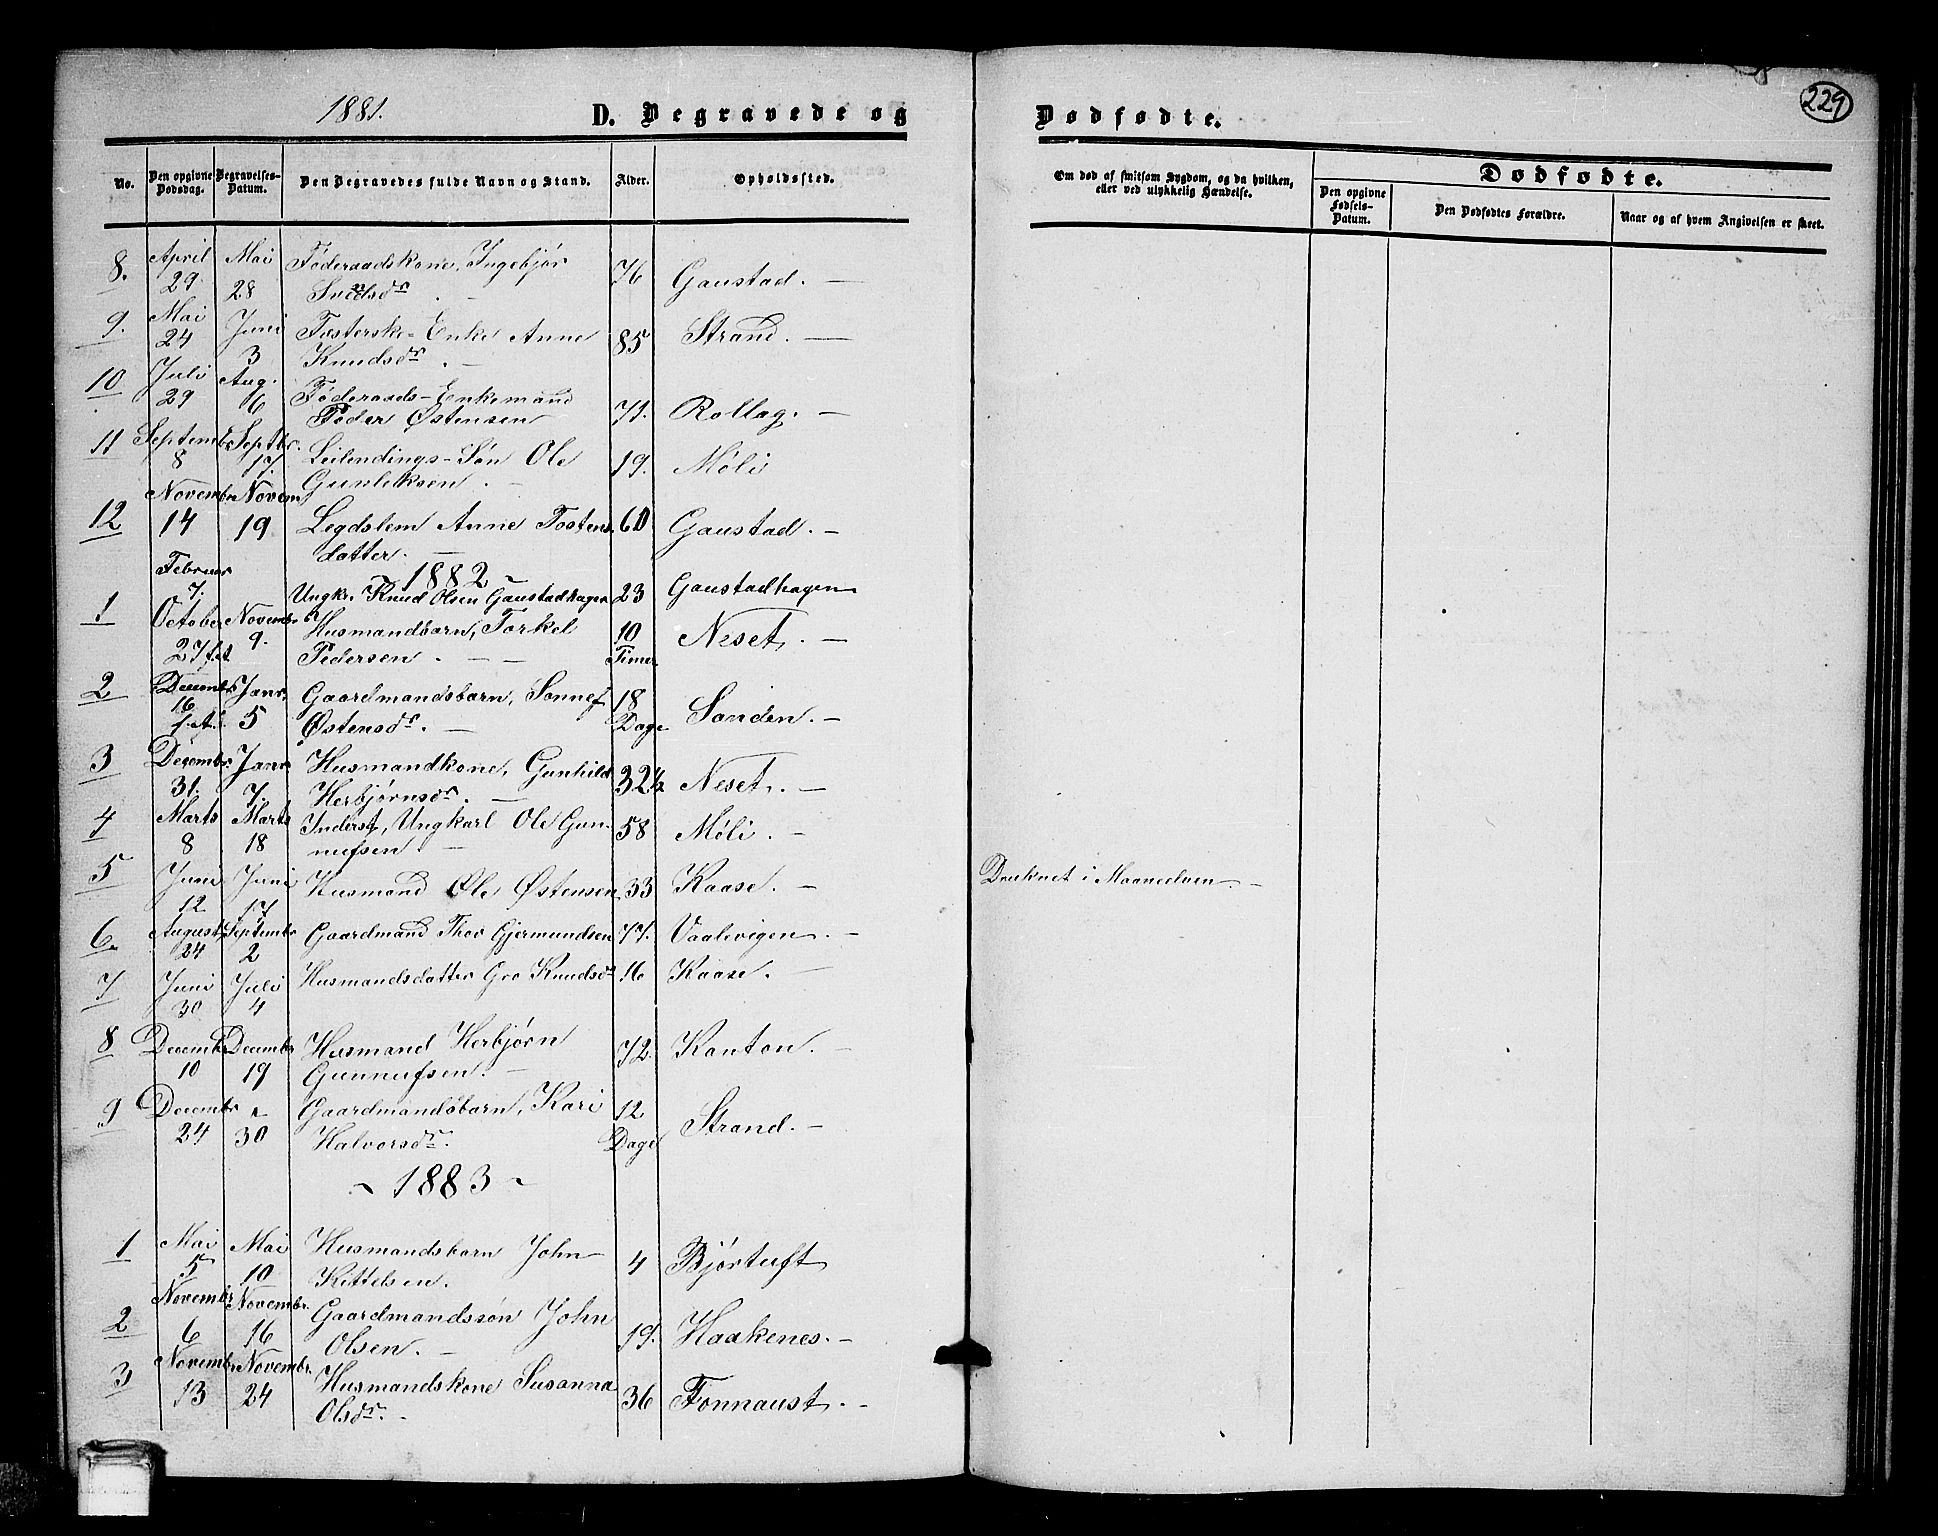 1881. D. Begravede og Dødfødte. 229
No. Den opgivne Dødsdag. Begravelses-Datum. Den Begravedes fulde Navn og Stand. Alder. Opholdssted.
Om død af smitsom Sygdom, og da hvilken, eller ved ulykkelig Hændelse.
Dødfødte.
Den opgivne Fødsels-Datum. Den Dødfødtes Forældre. Naar og af hvem Angivelsen er skeet.
8. April 29. Mai 28 Føderaadskone, Ingebjør 76 Gaustad. —
9. Mai 24 Juni 3 Enke Anne 85 Strand. —
Knudsdr. —
10 Juli 29 Aug. 6 Føderaads-Enkemand 71. Rollag. —
Peder Østensen
11 Septembr 8 Septbr. 17. Leilendings-Søn Ole 19. Møli
Gunleksen. —
12 Novembr 14 Novem 19 Legdslem Anne Tostens 60 Gaustad. —
datter. —
1882
Februar 7. Ungk. Knud Olsen Gaustadhagen 23 Gaustadhagen
1 October 27 Novembr 9. Husmandbarn, Torkel 10 Timer Neset. —
Pedersen. — —
2 Decembr 16 Janr. 5 Gaardmandsbarn, 18 Dage Sanden. —
Østensdr. —
3 Decembr. 31. Janr. 7. Husmandkone, Gunhild 32½ Neset. —
Herbjørnsdr. —
4 Marts 8 Marts 18 Inderst, Ungkarl Ole Gun- 58 Møli. —
nufsen. —
5 Juni 12 Juni 17 Husmand Ole Østensen 33 Kaase. — Druknet i Maaneelven. —
6. August 24 Septembr 2 Gaardmand Thor Gjermundsen 77. Vaalevigen. —
7 Juni 30 Juli 4 Husmandsdatter Gro Knudsdr 16 Kaase. —
8 Decembr 10 Decembr 19 Husmand Herbjørn 72. Kanton. —
Gunnufsen. —
9 Decembr 24 30 Gaardmandsbarn, Kari 12 Dage Strand. —
Halvorsdr.
~ 1883 ~
1 Mai 5 Mai 10 Husmandsbarn John 4 Bjørtuft
Kittelsen.
2 Novembr 6 Novembr. 16 Gaardmandssøn John 19. Haakenes. —
Olsen. —
3 Novembr 13 Novembr. 24 Husmandskone Susanna 36 Fonnaust. —
Olsdr. —